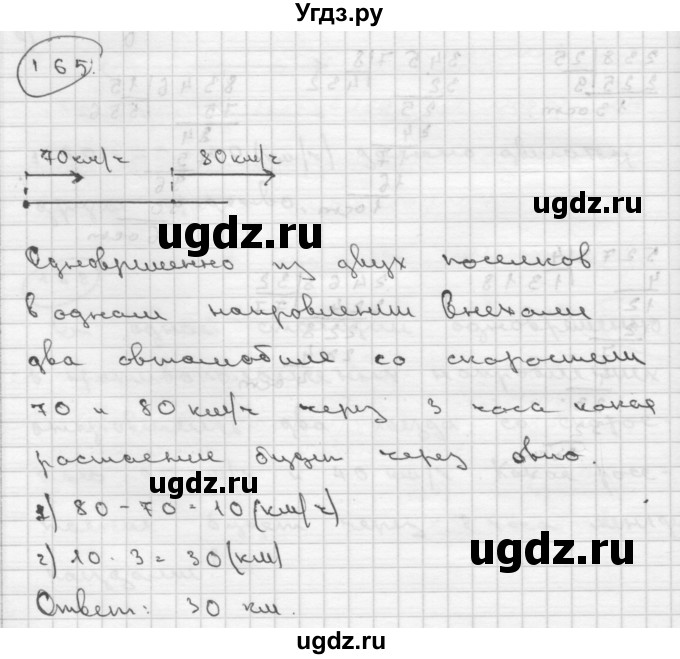 Угdз.ру
165.
70км/ч 80км/ч
ugdz.ru
ugdz.ru
Одновременно из двух поселков
в одном направлении выехали
два автомобиля со скоростями
70 и 80 км/ч через 3 часа какое
растаение будет через авто.
ugdz.ru
1) 80 - 70 = 10 (км/ч)
ugdz.ru
2) 10 · 3 = 30 (км)
Ответ: 30 км.
ugdz.ru